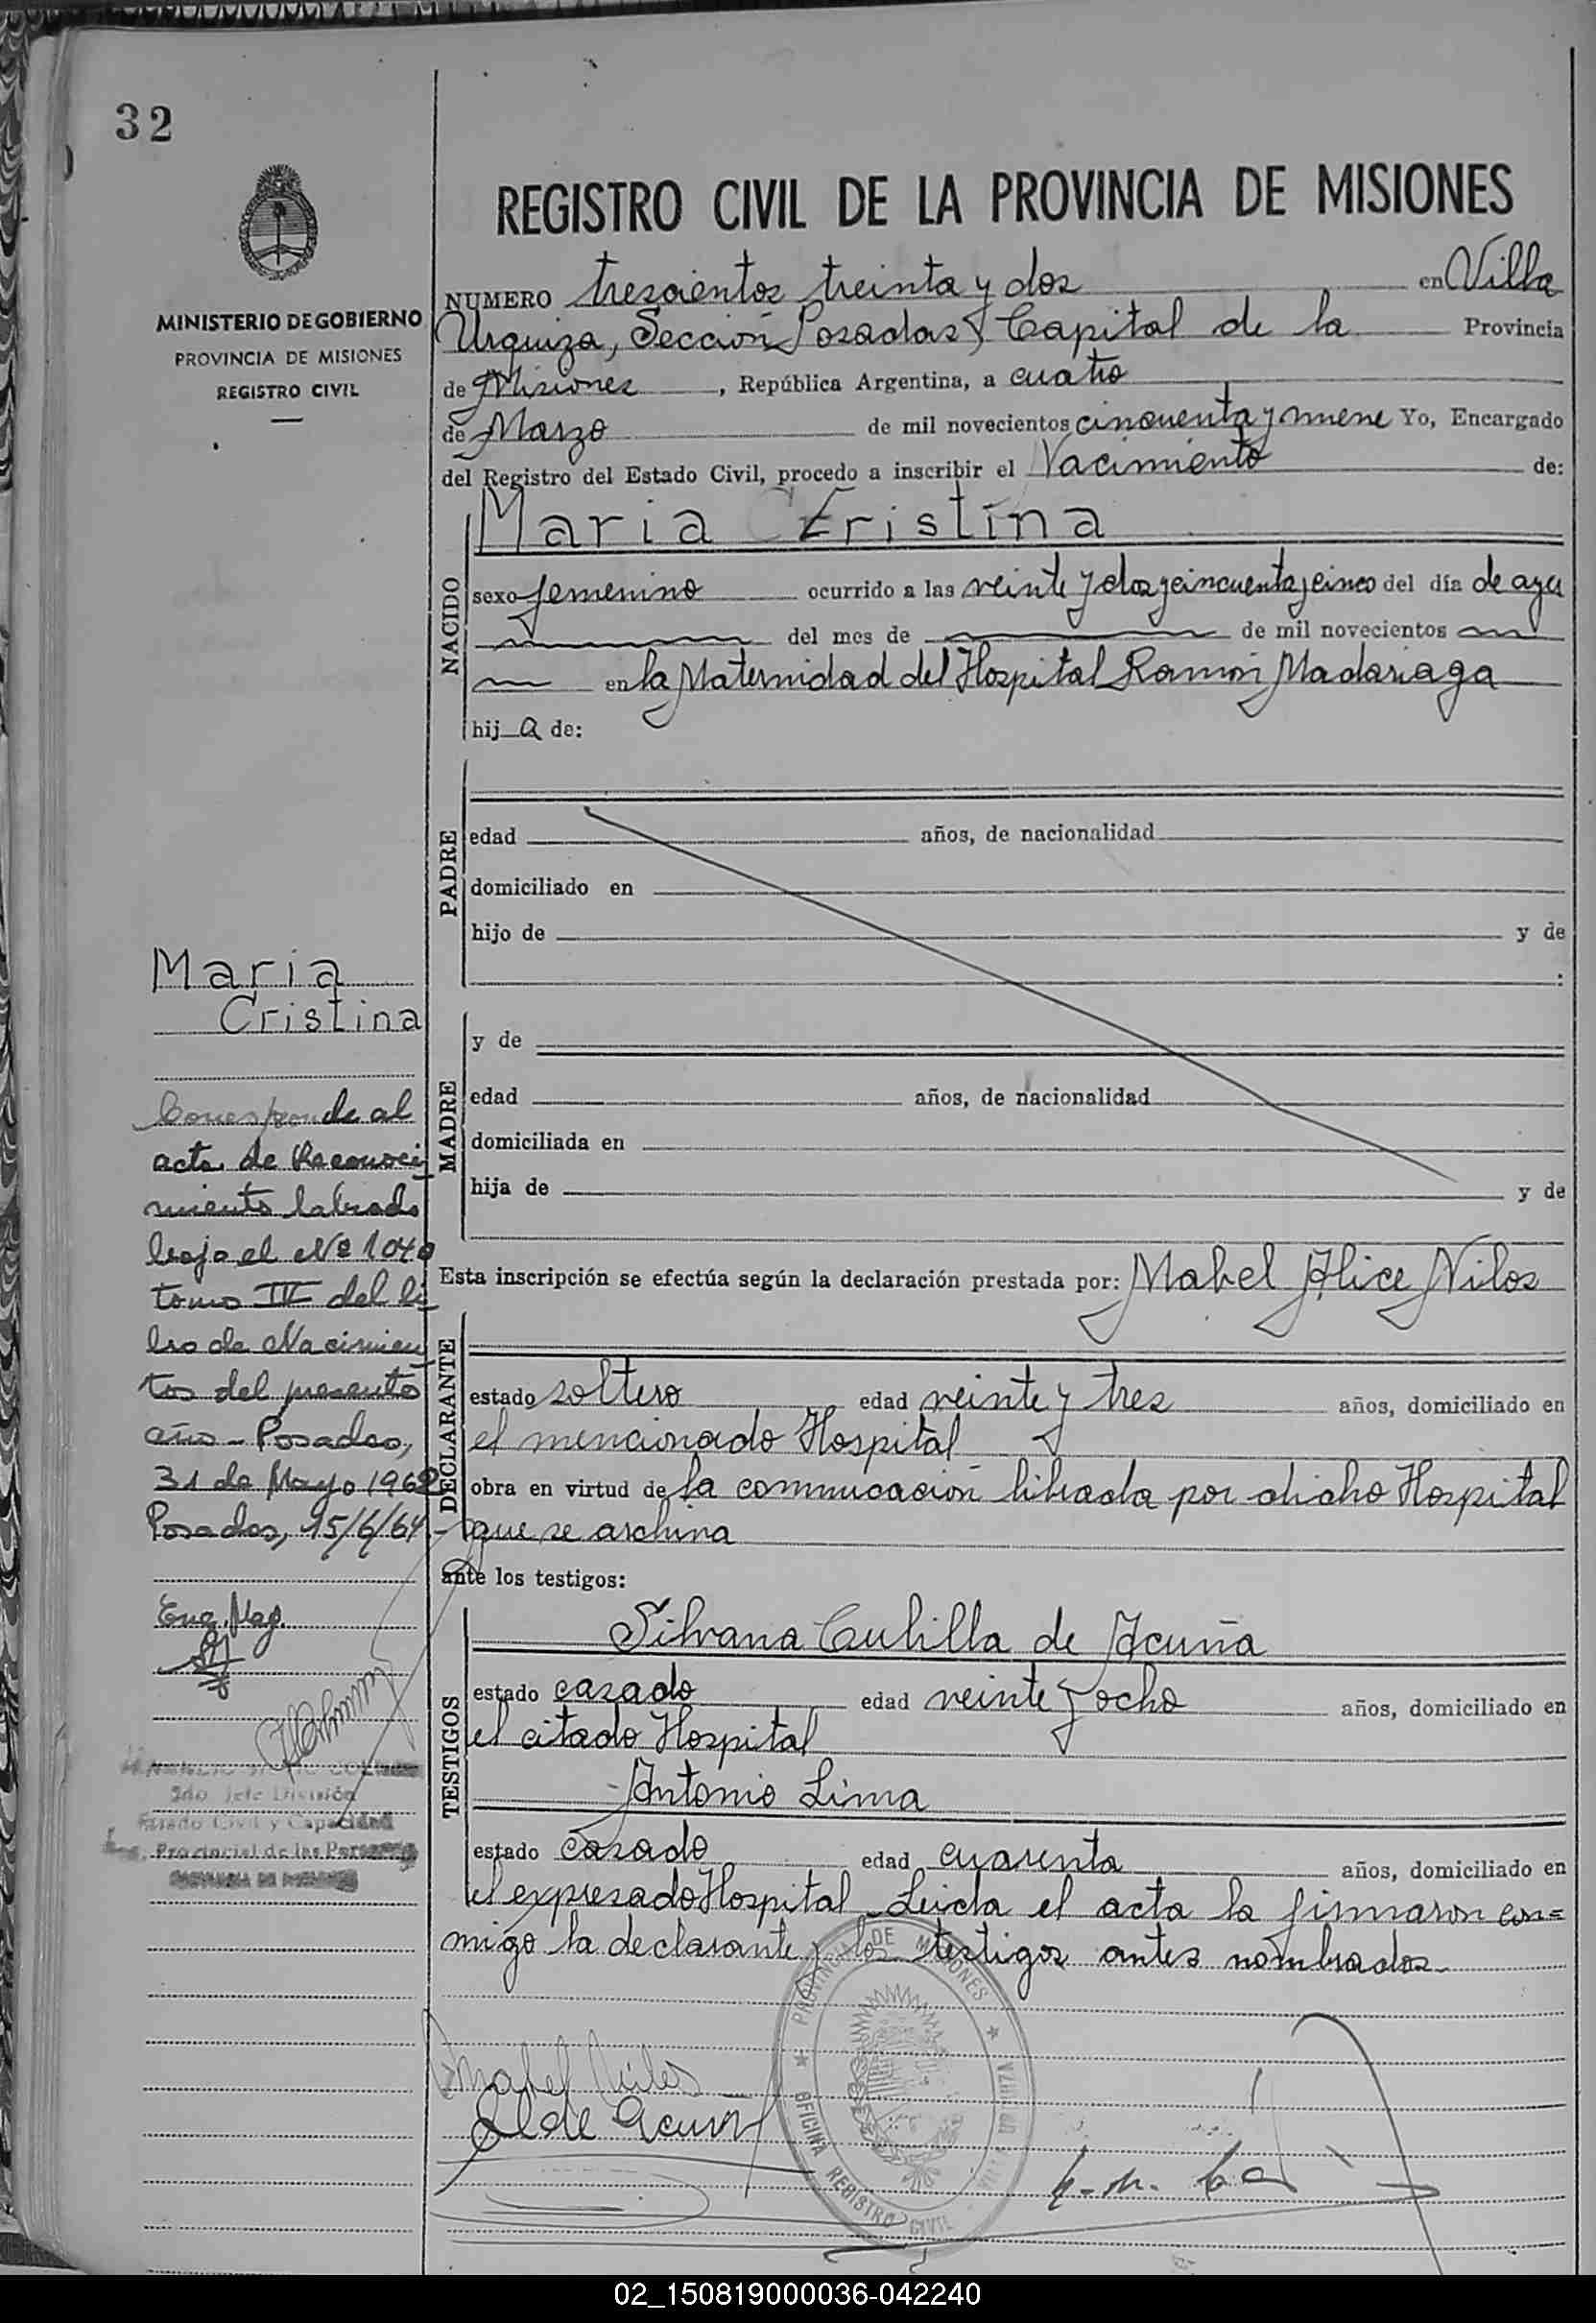 32
MINISTERIO DE GOBIERNO
PROVINCIA DE MISIONES
REGISTRO CIVIL
REGISTRO CIVIL DE LA PROVINCIA DE MISIONES
NUMERO trescientos treinta y dos en Villa
Urquiza, Sección Posadas, Capital de la Provincia
de Misiones, República Argentina, a cuatro
de Marzo de mil novecientos cincuenta y nueve Yo, Encargado
del Registro del Estado Civil, procedo a inscribir el Nacimiento de:
NACIDO
Maria Cristina
sexo femenino ocurrido a las veinte y dos y cincuenta y cinco del día de ayer
del mes de de mil novecientos
en la Maternidad del Hospital Ramón Madariaga
hij a de:
PADRE
edad años, de nacionalidad
domiciliado en
hijo de y de
:
MADRE
y de
edad años, de nacionalidad
domiciliada en
hija de y de
Esta inscripción se efectúa según la declaración prestada por: Mabel Alice Nilos
DECLARANTE
estado soltero edad veinte y tres años, domiciliado en
el mencionado Hospital
obra en virtud de la comunicación librada por dicho Hospital
que se archiva
ante los testigos:
TESTIGOS
Silvana Cubilla de Acuña
estado casado edad veinte y ocho años, domiciliado en
el citado Hospital
Antonio Lima
estado casado edad cuarenta años, domiciliado en
el expresado Hospital Leida el acta la firmaron con=
migo la declarante y los testigos antes nombrados.
Mabel Nilos
de Acuña
PROVINCIA DE MISIONES
OFICINA REGISTRO CIVIL
Maria
Cristina
Corresponde al
acta de Reconoci
miento labrado
bajo el Nº 1040
tomo III del li
bro de Nacimien
tos del presente
año - Posadas,
31 de Mayo 1962
Posadas, 15/6/64.-
Enc. Mag.
2do. Jefe División
Estado Civil y Capacidad
Provincial de las Personas
02_150819000036-042240